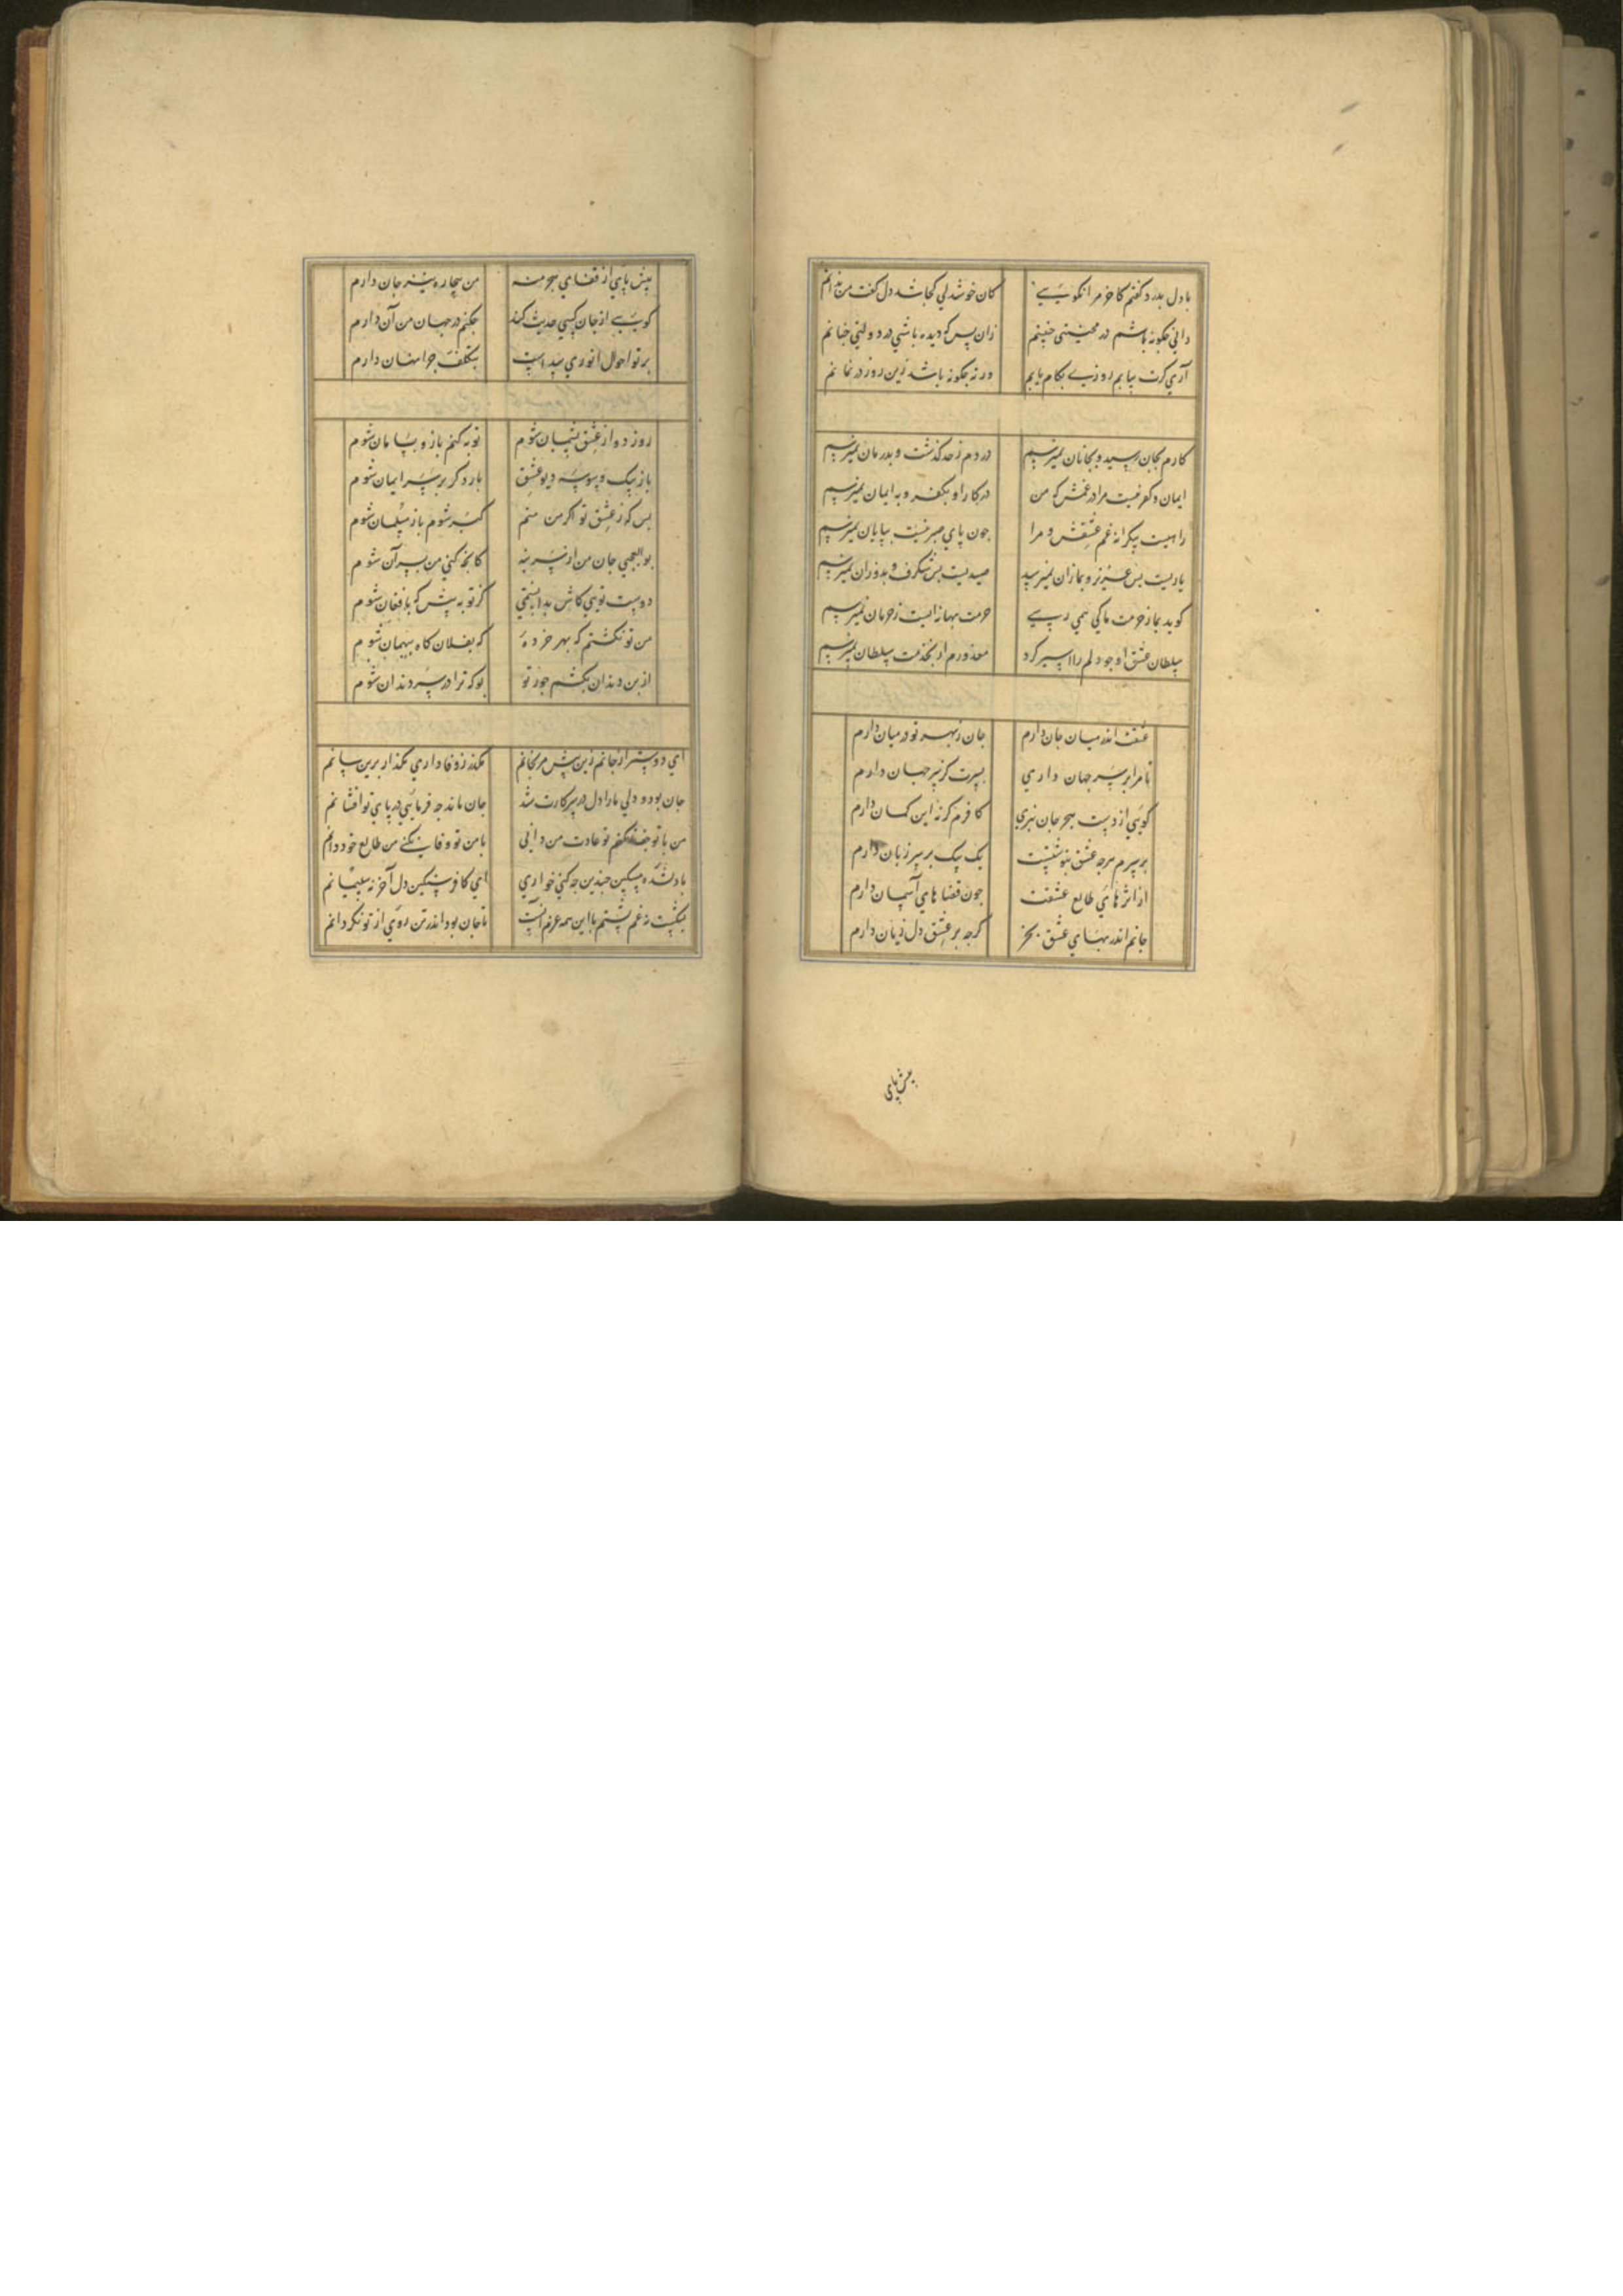 با دل بدرد گفتم کاخر مرا نگویی کان خوشدلی کجا شد دل گفت من ندانم
دانی چگونه باشم در محنتی چنینم زان پس که دیده باشی در دولتی چنانم
آری گرت بیابم روزی بکام یابم ورنه چگونه باشد زین روز در نمانم
کارم بجان رسید و بجانان نمیرسم دردم ز حد گذشت و بدرمان نمیرسم
ایمان و کفر نیست مرا در غمش که من در کار او بکفر و به ایمان نمیرسم
راهیست بیکرانه غم عشقش و مرا چون پای صبر نیست بپایان نمیرسم
یاریست بس عزیز و بما زان نمیرسد صیدیست بس شگرف و بدو زان نمیرسم
گوید بما ز حرمت ما کی همی رسی حرمت بهانه ایست ز حرمان نمیرسم
سلطان عشق او چو دلم را اسیر کرد معذورم ار بخدمت سلطان نمیرسم
عشقت اندر میان جان دارم جان ز بهر تو در میان دارم
تا مرا بر سر جهان داری بسرت گر سر جهان دارم
گویی از دست هجر جان نبری کافرم گر نه این گمان دارم
بر سرم هرچه عشق بنوشتست یک بیک بر سر زبان دارم
از اثرهای طالع عشقت چون قضاهای آسمان دارم
جانم اندر بهای عشق بخر گرچه بر عشق دل زیان دارم
پیش پای
پیش پای از قفای هجر منه من بیچاره نیز جان دارم
گویی از جان کسی حدیث کند چکنم در جهان من آن دارم
بر تو احوال انوری پیداست بتکلف چرا نهان دارم
روز دو از عشق پشیمان شوم توبه کنم باز و بسامان شوم
باز بیک وسوسه دیو عشق بار دگر بر سر ایمان شوم
بس که ز عشق تو اگر من منم گبر شوم باز مسلمان شوم
بوالعجبی جان من از سر بنه کانچه کنی من بسر آن شوم
دوست تویی کاش بدانستمی کز تو به پیش که بافغان شوم
من تو نگشتم که بهر خرده که بفلان گاه ببهمان شوم
از بن دندان بکشم جور تو بو که ترا در سر دندان شوم
ای دوستر از جانم زین بیش مرنجانم مگذر ز وفاداری مگذار برین سانم
جان بود و دلی ما را دل در سر کارت شد جان ماند چه فرمایی در پای تو افشانم
من با تو جفا نکنم تو عادت من دانی با من تو وفا نکنی من طالع خود دانم
با دلشده مسکین چندین چه کنی خواری ای کافر سنگین دل آخر نه مسلمانم
بشکست ز غم پشتم با این همه عزم آنست تا جان بود اندر تن روی از تو نگردانم